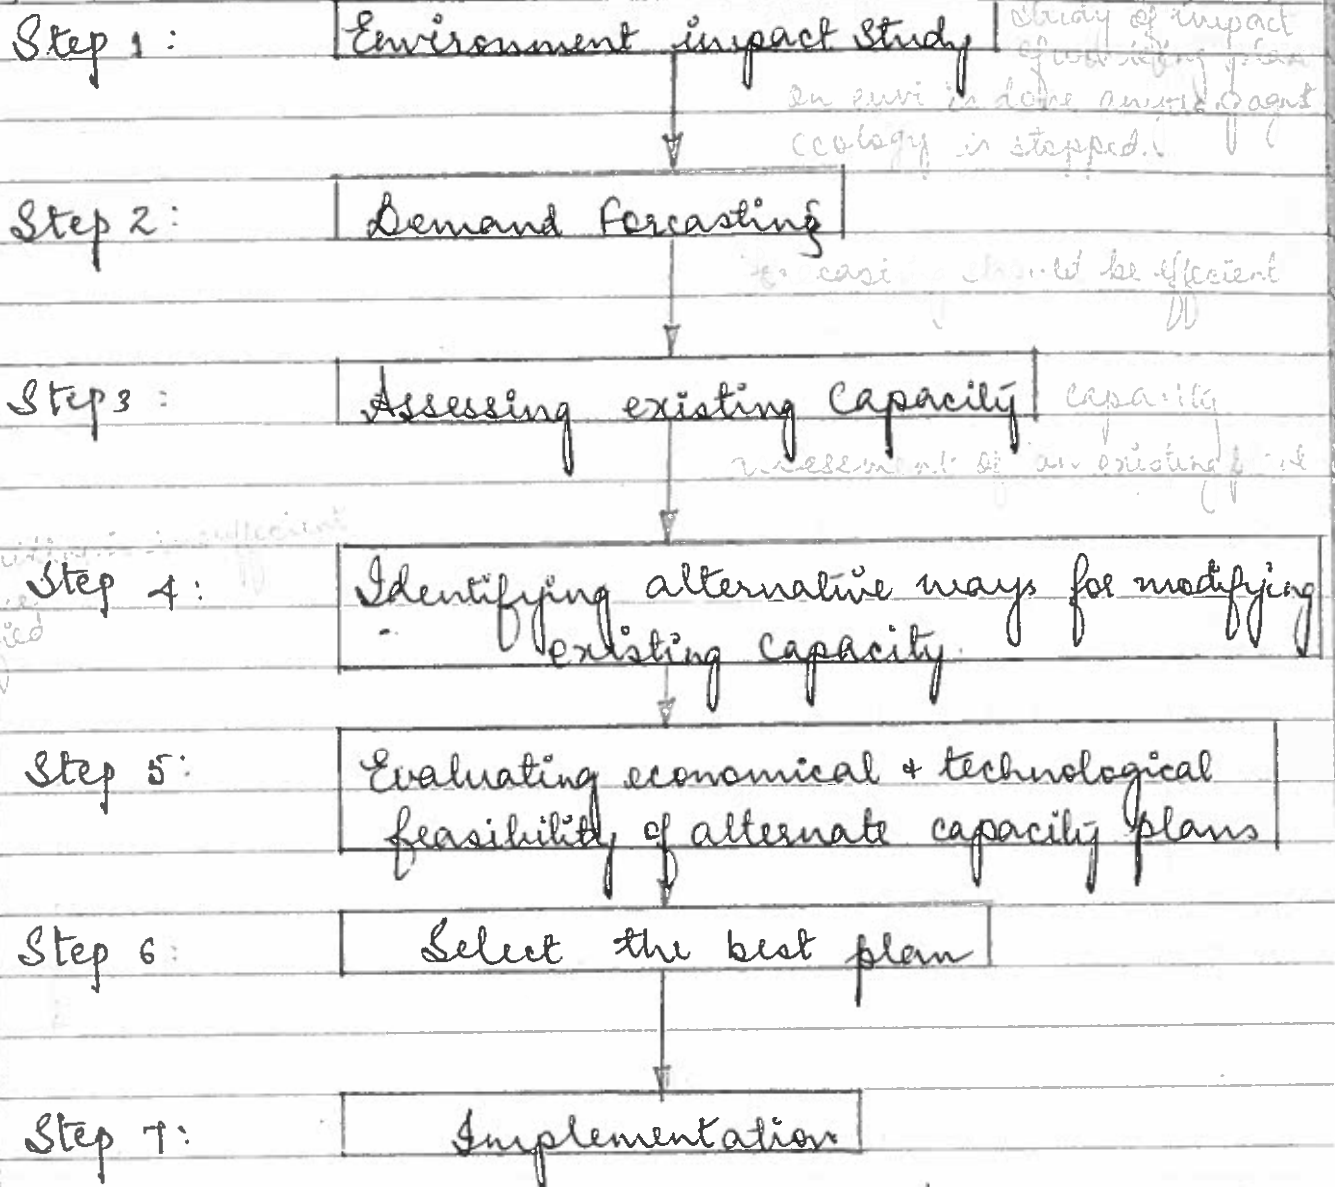 Step 1: Environment impact Study
study of impact
plan
on envi is done
ecology is stopped.
Step 2: Demand Forcasting
be efficient
Step 3: Assessing existing Capacity
capacity
of an existing
insufficient
Step 4: Identifying alternative ways for modifying
existing capacity.
Step 5: Evaluating economical & technological
feasibility of alternate capacity plans
Step 6: Select the best plan
Step 7: Implementation